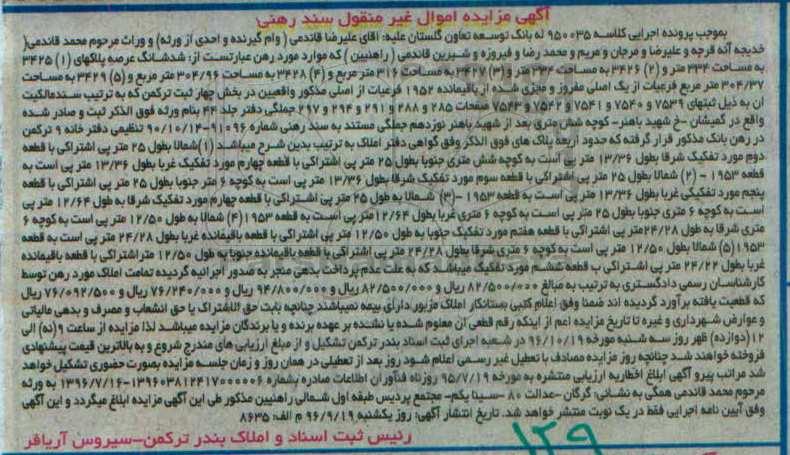 آگهی مزایده اموال غیر منقول سند رهنی
بموجب پرونده اجرایی کلاسه ۹۵۰۰۳۵ له بانک توسعه تعاون گلستان علیه: آقای علیرضا قائدمی ( وام گیرنده و احدی از ورثه) و وراث مرحوم محمد قائدمی(
خدیجه آنه قرجه و علیرضا و مرجان و مریم و محمد رضا و فیروزه و شیرین قائدمی ( راهنین ) که موارد مورد رهن عبارتست از: ششدانگ عرصه پلاکهای (۱) ۳۴۲۵
به مساحت ۳۳۴ متر و (۲) ۳۴۲۶ به مساحت ۳۳۴ متر و (۳) ۳۴۲۷ به مساحت ۳۱۶ متر مربع و (۴) ۳۴۲۸ به مساحت ۳۰۴/۹۶ متر مربع و (۵) ۳۴۲۹ به مساحت
۳۰۴/۳۷ متر مربع فرعیات از یک اصلی مفروز و مجزی شده از باقیمانده ۱۹۵۲ فرعیات از اصلی مذکور واقعیین در بخش چهار ثبت ترکمن که به ترتیب سندمالکیت
آن به ذیل ثبتهای ۷۵۳۹ و ۷۵۴۰ و ۷۵۴۱ و ۷۵۴۲ و ۷۵۴۳ صفحات ۲۸۵ و ۲۸۸ و ۲۹۱ و ۲۹۴ و ۲۹۷ جملگی دفتر جلد ۴۴ بنام ورثه فوق الذکر ثبت و صادر شده
واقع در گمیشان -خ شهید باهنر- کوچه شش متری بعد از شهید باهنر نوزدهم جملگی مستند به سند رهنی شماره ۹۱۰۹۶-۹۰/۱۰/۱۴ تنظیمی دفتر خانه ۹ ترکمن
در رهن بانک مذکور قرار گرفته که حدود اربعه پلاک های فوق الذکر وفق گواهی دفتر املاک به ترتیب بدین شرح میباشد (۱)شمالا بطول ۲۵ متر پی اشتراکی با قطعه
دوم مورد تفکیک شرقا بطول ۱۳/۳۶ متر پی است به کوچه شش متری جنوبا بطول ۲۵ متر پی اشتراکی با قطعه چهارم مورد تفکیک غربا بطول ۱۳/۳۶ متر پی است به
قطعه ۱۹۵۳ - (۲) شمالا بطول ۲۵ متر پی اشتراکی با قطعه سوم مورد تفکیک شرقا بطول ۱۳/۳۶ متر پی است به کوچه ۶ متر جنوبا بطول ۲۵ متر پی اشتراکی با قطعه
پنجم مورد تفکیکی غربا بطول ۱۳/۳۶ متر پی است به قطعه ۱۹۵۳ -(۳) شمالا به طول ۲۵ متر پی اشتراکی با قطعه چهارم مورد تفکیک شرقا به طول ۱۲/۶۴ متر پی
است به کوچه ۶ متری جنوبا بطول ۲۵ متر پی است به کوچه ۶ متری غربا بطول ۱۲/۶۴ متر پی است به قطعه ۱۹۵۳(۴) شمالا به طول ۱۲/۵۰ متر پی است به کوچه ۶
متری شرقا به طول ۲۴/۲۸متر پی اشتراکی با قطعه هفتم مورد تفکیک جنوبا به طول ۱۲/۵۰ متر پی اشتراکی با قطعه باقیمانده غربا بطول ۲۴/۲۸ متر پی است به قطعه
۱۹۵۳(۵) شمالا بطول ۱۲/۵۰ متر پی است به کوچه ۶ متری شرقا بطول ۲۴/۲۸ متر پی اشتراکی با قطعه باقیمانده جنوبا به طول ۱۲/۵۰ متراشتراکی با قطعه باقیمانده
غربا بطول ۲۴/۲۲ متر پی اشتراکی ب قطعه ششم مورد تفکیک میباشد که به علت عدم پرداخت بدهی منجر به صدور اجرائیه گردیده تمامت املاک مورد رهن توسط
کارشناسان رسمی دادگستری به ترتیب به مبالغ ۸۲/۵۰۰/۰۰۰ ریال و ۸۲/۵۰۰/۰۰۰ ریال و ۹۴/۸۰۰/۰۰۰ ریال و ۷۶/۲۴۰/۰۰۰ ریال و ۷۶/۰۹۲/۵۰۰ ریال
که قطعیت یافته برآورد گردیده اند ضمنا وفق اعلام کتبی بستانکار املاک مزبور دارای بیمه نمیباشند چنانچه بابت حق الاشتراک یا حق انشعاب و مصرف و بدهی مالیاتی
و عوارض شهرداری و غیره تا تاریخ مزایده اعم از اینکه رقم قطعی آن معلوم شده یا نشده بر عهده برنده و یا برندگان مزایده میباشد لذا مزایده از ساعت ۹(نه) الی
۱۲(دوازده) ظهر روز سه شنبه مورخه ۹۶/۱۰/۱۹ در شعبه اجرای ثبت اسناد بندر ترکمن تشکیل و از مبلغ ارزیابی های مندرج شروع و به بالاترین قیمت پیشنهادی
فروخته خواهند شد چنانچه روز مزایده مصادف با تعطیل غیر رسمی اعلام شود روز بعد از تعطیلی در همان روز و زمان جلسه مزایده بصورت حضوری تشکیل خواهد
شد مراتب پیرو آگهی ابلاغ اخطاریه ارزیابی منتشره به مورخه ۹۵/۷/۱۹ روزنامه فنآوران اطلاعات صادره بشماره ۱۳۹۶۰۳۸۱۲۴۱۷۰۰۰۰۰۶-۱۳۹۶/۷/۱۶ به ورثه
مرحوم محمد قائدمی همگی به نشانی: گرگان -عدالت ۸۰ -سینا یکم- مجتمع پردیس طبقه اول شمالی راهنیین مذکور طی این آگهی مزایده ابلاغ میگردد و این آگهی
وفق آیین نامه اجرایی فقط در یک نوبت منتشر خواهد شد. تاریخ انتشار آگهی: روز یکشنبه ۹۶/۹/۱۹ م الف: ۸۶۳۵
رئیس ثبت اسناد و املاک بندر ترکمن-سیروس آریافر
۱۲۹